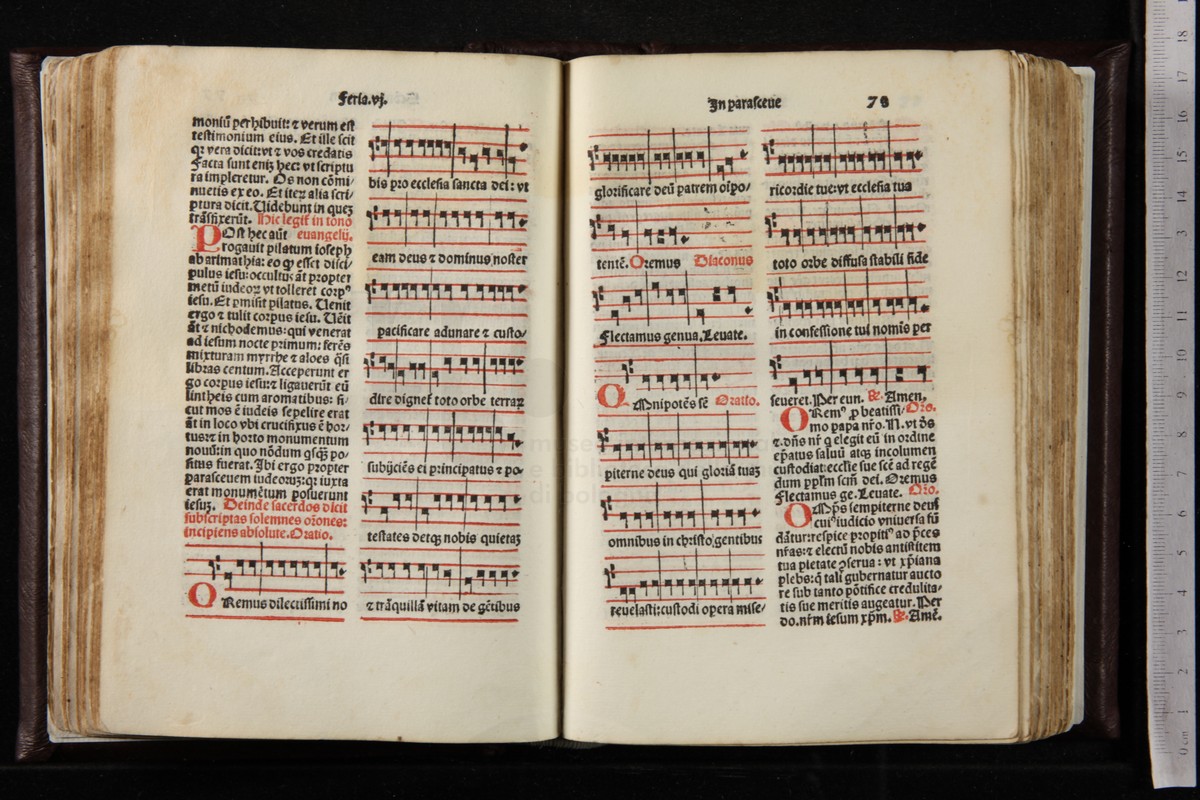 Feria.vj.
moniū perhibuit: ⁊ verum est
testimonium eius. Et ille scit
qꝛ vera dicit:vt ⁊ vos credatis
Facta sunt eniz hec: vt scriptu
ra impleretur. Os non cōmi/
nuetis ex eo. Et iteꝝ alia scri/
ptura dicit. Uidebunt in quez
trāsfixerūt. Hic legit̄ in tono
POst hec aūt euangelij.
rogauit pilatum ioseph
ab arimathia: eo ꝙ esset disci/
pulus iesu: occultus āt propter
metū iudeoꝝ vt tolleret corpꝰ
iesu. Et ꝑmisit pilatus. Uenit
ergo ⁊ tulit corpus iesu. Uēit
āt ⁊ nichodemus: qui venerat
ad iesum nocte primum: ferēs
mixturam myrrhe ⁊ aloes q̄si
libras centum. Acceperunt er
go corpus iesu: ⁊ ligauerūt eū
lintheis cum aromatibus: si/
cut mos ē iudeis sepelire erat
āt in loco vbi crucifixus ē hor/
tus: ⁊ in horto monumentum
nouū: in quo nōdum qsqꝫ po/
situs fuerat. Ibi ergo propter
parasceuem iudeoꝝ: qꝛ iuxta
erat monumētum posuerunt
iesuz. Deinde sacerdos dicit
subscriptas solemnes orōnes:
incipiens absolute. Oratio.
ORemus dilectissimi no
bis pro ecclesia sancta dei: vt
eam deus ⁊ dominus noster
pacificare adunare ⁊ custo/
dire dignet̄ toto orbe terraꝝ
subijciēs ei principatus ⁊ po/
testates detqꝫ nobis quietaꝫ
⁊ trāquillā vitam de gētibus
In parasceue 78
glorificare deū patrem oīpo/
tentē. Oremus Diaconus
Flectamus genua. Leuate.
OMnipotēs sē Oratio.
piterne deus qui gloriā tuaꝫ
omnibus in christo gentibus
reuelasti: custodi opera mise/
ricordie tue: vt ecclesia tua
toto orbe diffusa stabili fide
in confessione tui nomīs per
seueret. Per eun. ℟. Amen.
ORemꝰ ⁊ ꝓ beatissi/ Oro.
mo papa nr̄o .N. vt d̄s
⁊ dn̄s nr̄ q elegit eū in ordine
ep̄atus saluū atqꝫ incolumen
custodiat: ecclīe sue scē ad regē
dum pplm̄ scm̄ dei. Oremus
Flectamus ge. Leuate. Oro.
OMp̄s sempiterne deus
cuiꝰ iudicio vniuersa fū
dātur: respice propitiꝰ ad p̄ces
nr̄as: ⁊ electū nobis antistitem
tua pietate ꝯserua: vt xp̄iana
plebs: q̄ tali gubernatur aucto
re sub tanto pōtifice credulita/
tis sue meritis augeatur. Per
do. nr̄m iesum xp̄m. ℟. Amē.